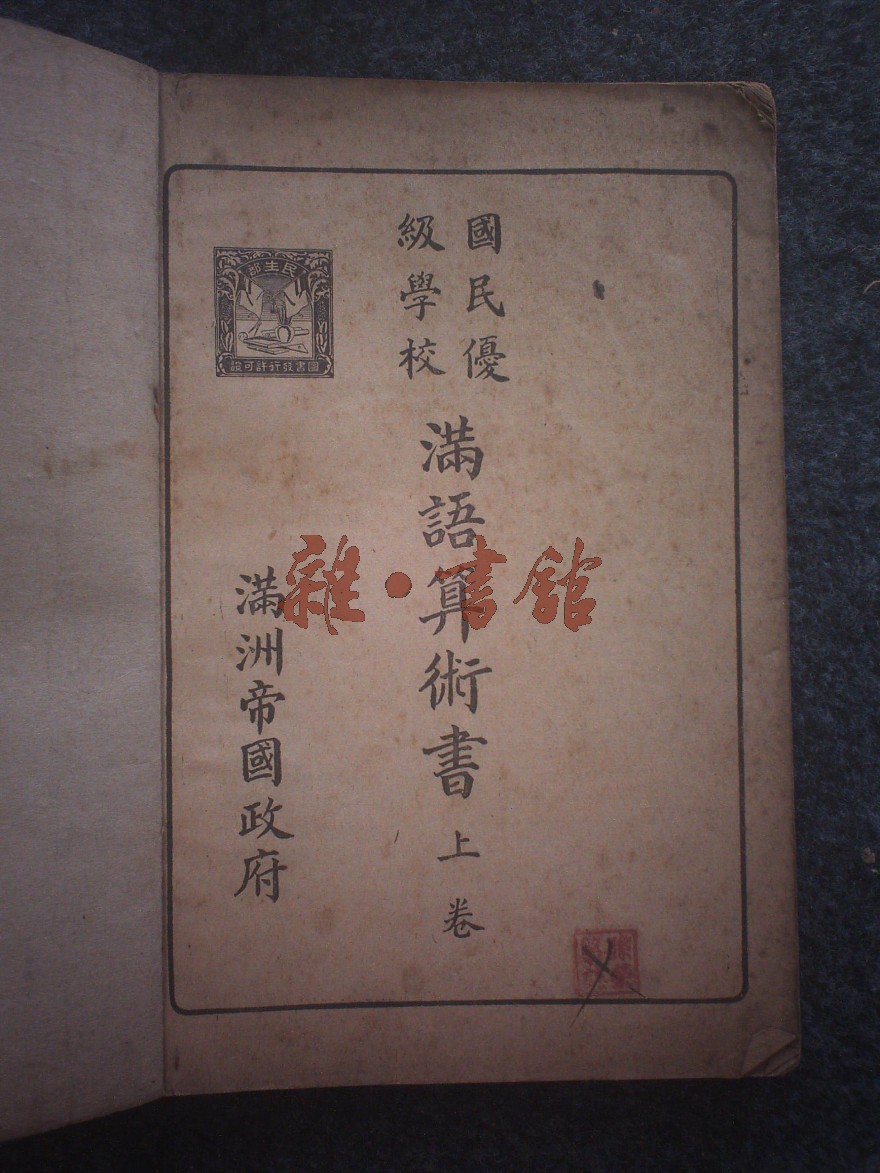 國民優
級學校
滿語算術書 上卷
民生部
圖書發行許可證
滿洲帝國政府
雜·書館